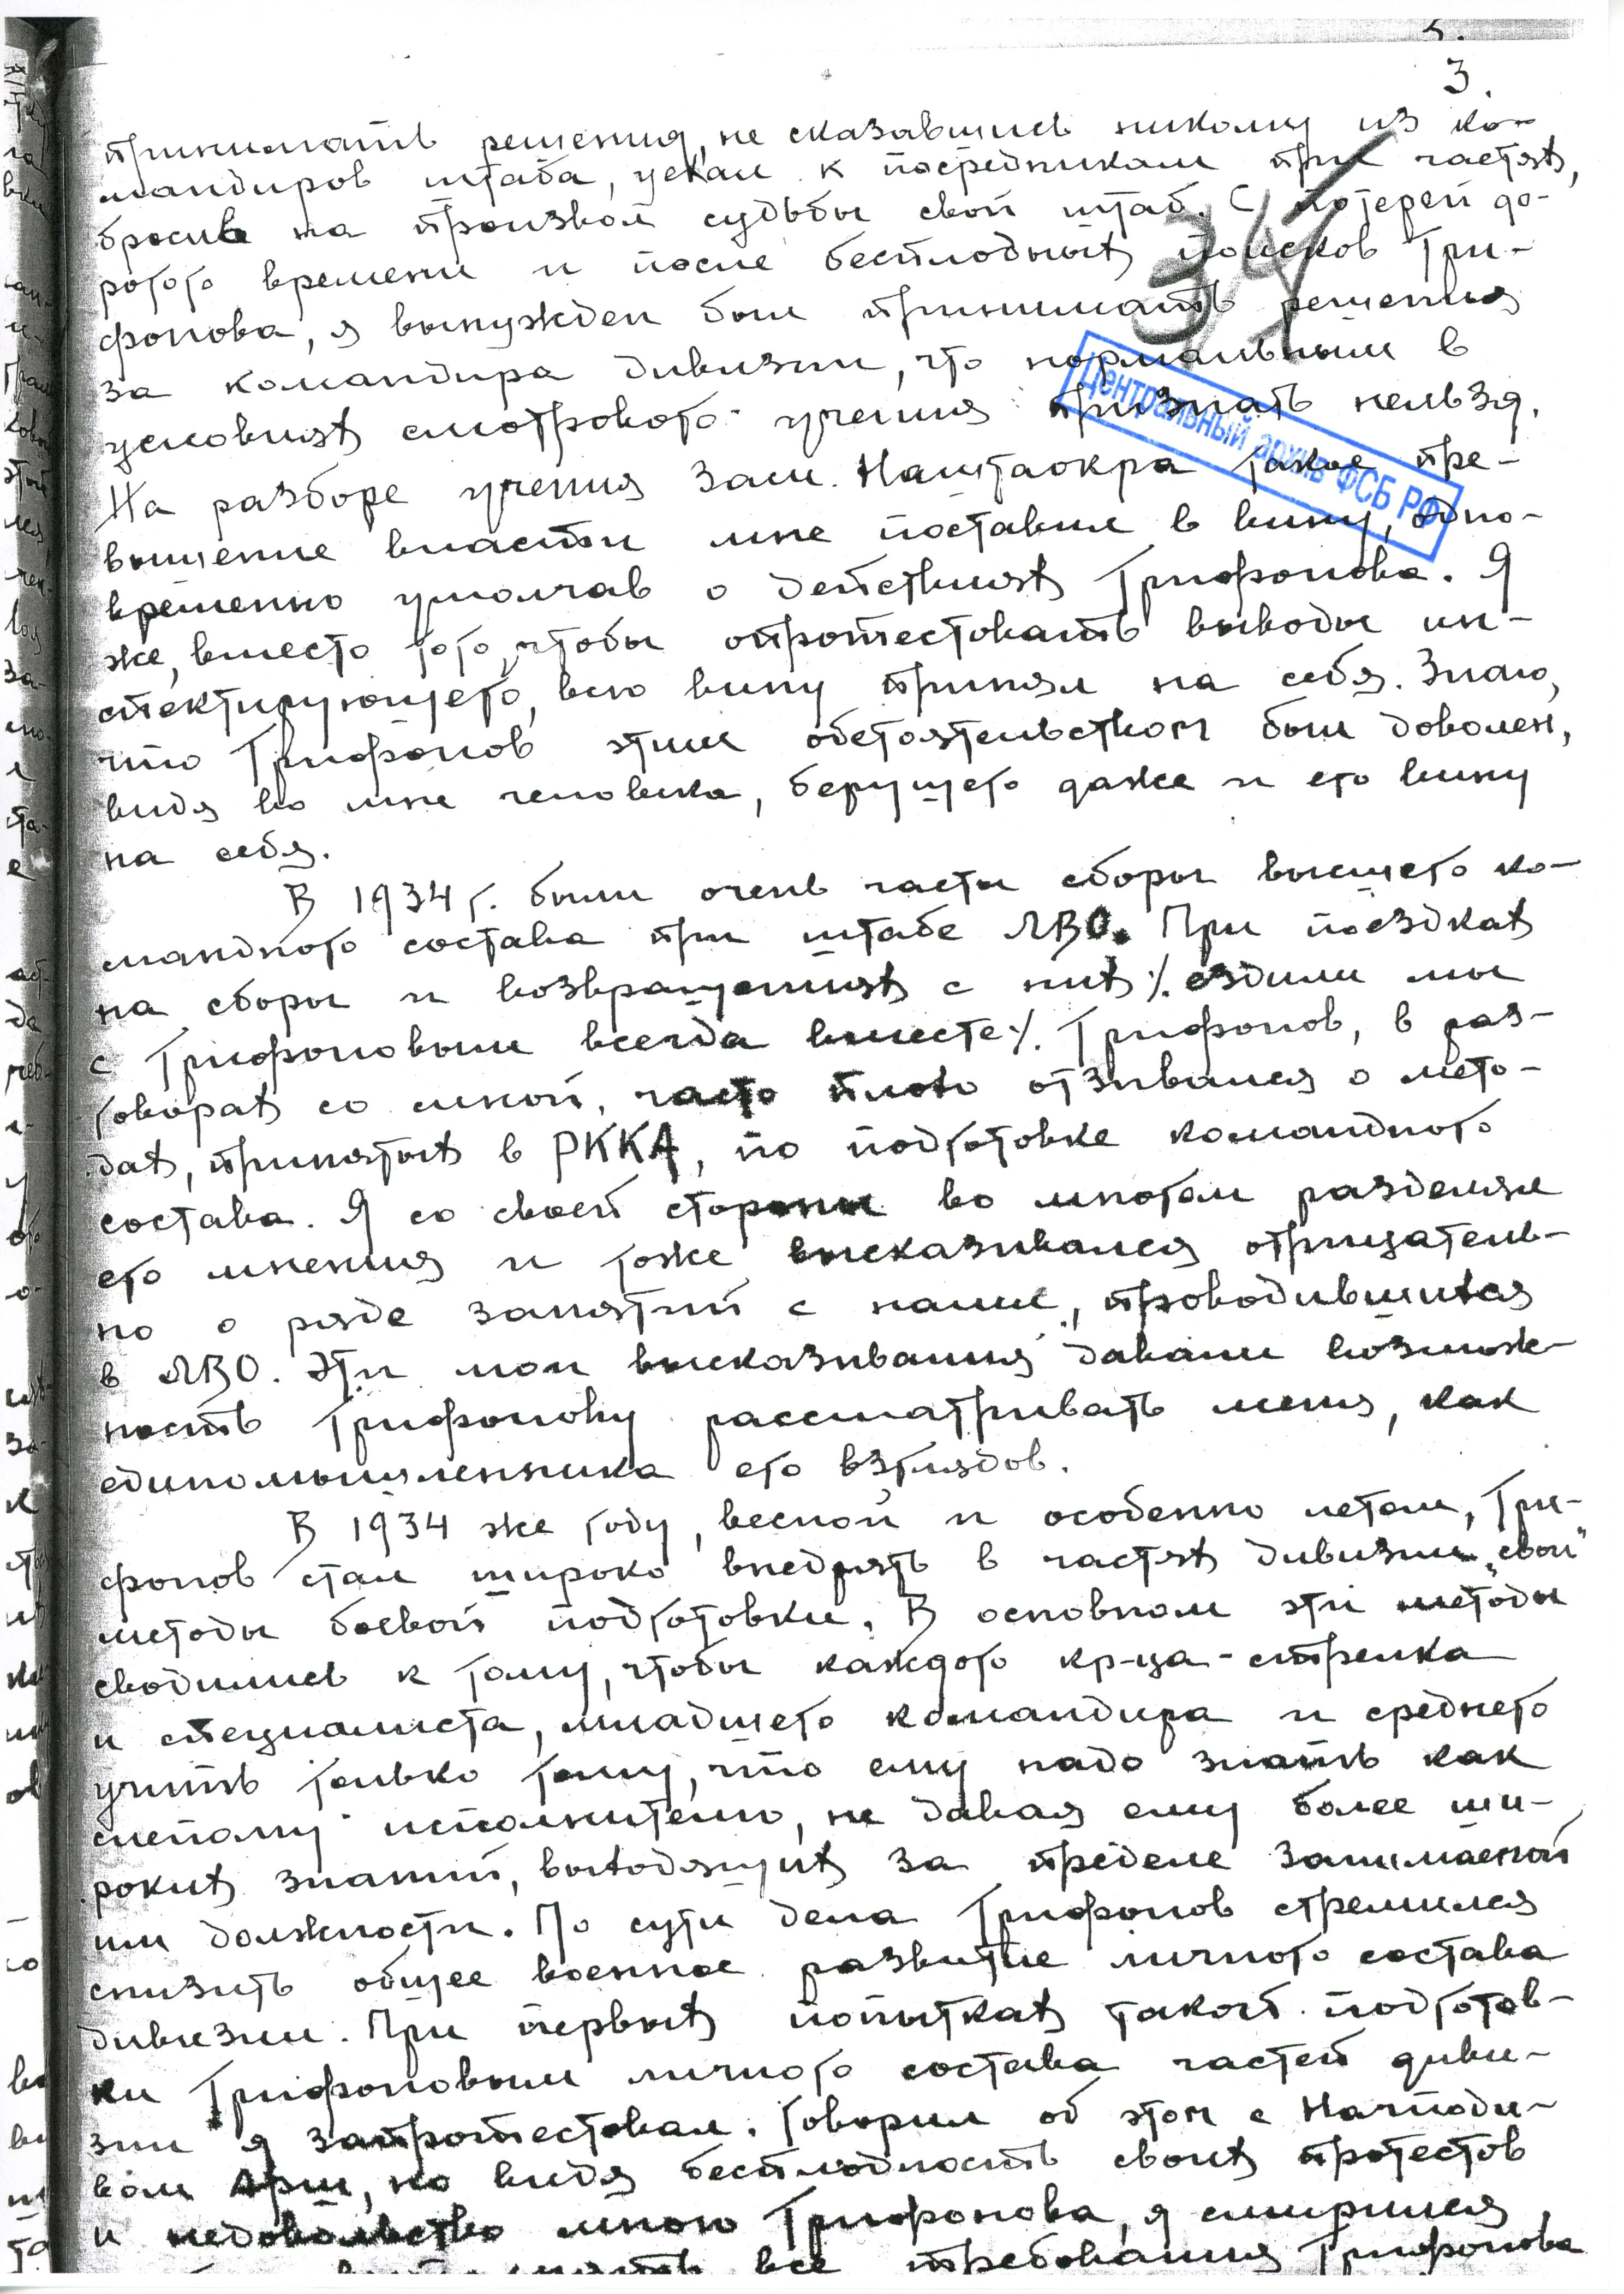 3.
34
принимать решения, не сказавшись никому из ко-
мандиров штаба, уехал к посредникам при частях,
бросив на произвол судьбы свой штаб. С потерей до-
рогого времени и после бесплодных поисков Три-
фонова, я вынужден был принимать решения
за командира дивизии, что нормальным в
условиях смотрового учения признать нельзя.
Центральный архив ФСБ РФ
На разборе учения Зам. Наштаокра такое пре-
вышение власти мне поставил в вину, одно-
временно умолчав о действиях Трифонова. Я
же, вместо того, чтобы опротестовать выводы ин-
спектирующего, всю вину принял на себя. Знаю,
что Трифонов этим обстоятельством был доволен,
видя во мне человека, берущего даже и его вину
на себя.
В 1934 г. были очень часты сборы высшего ко-
мандного состава при штабе ЛВО. При поездках
на сборы и возвращениях с них /. ездили мы
с Трифоновым всегда вместе ./. Трифонов, в раз-
говорах со мной, часто плохо отзывался о мето-
дах, принятых в РККА, по подготовке командного
состава. Я со своей стороны во многом разделял
его мнения и тоже высказывался отрицатель-
но о ряде занятий с нами, проводившихся
в ЛВО. Эти мои высказывания давали возмож-
ность Трифонову рассматривать меня, как
единомышленника его взглядов.
В 1934 же году, весной и особенно летом, Три-
фонов стал широко внедрять в частях дивизии „свои"
методы боевой подготовки. В основном эти методы
сводились к тому, чтобы каждого кр-ца-стрелка
и специалиста, младшего командира и среднего
учить только тому, что ему надо знать как
слепому исполнителю, не давая ему более ши-
роких знаний, выходящих за пределы занимаемой
им должности. По сути дела Трифонов стремился
снизить общее военное развитие личного состава
дивизии. При первых попытках такой подготов-
ки Трифоновым личного состава частей диви-
зии я запротестовал. Говорил об этом с Начподи-
вом Арш, но видя бесплодность своих протестов
и недовольство мною Трифонова, я смирился
все требования Трифонова